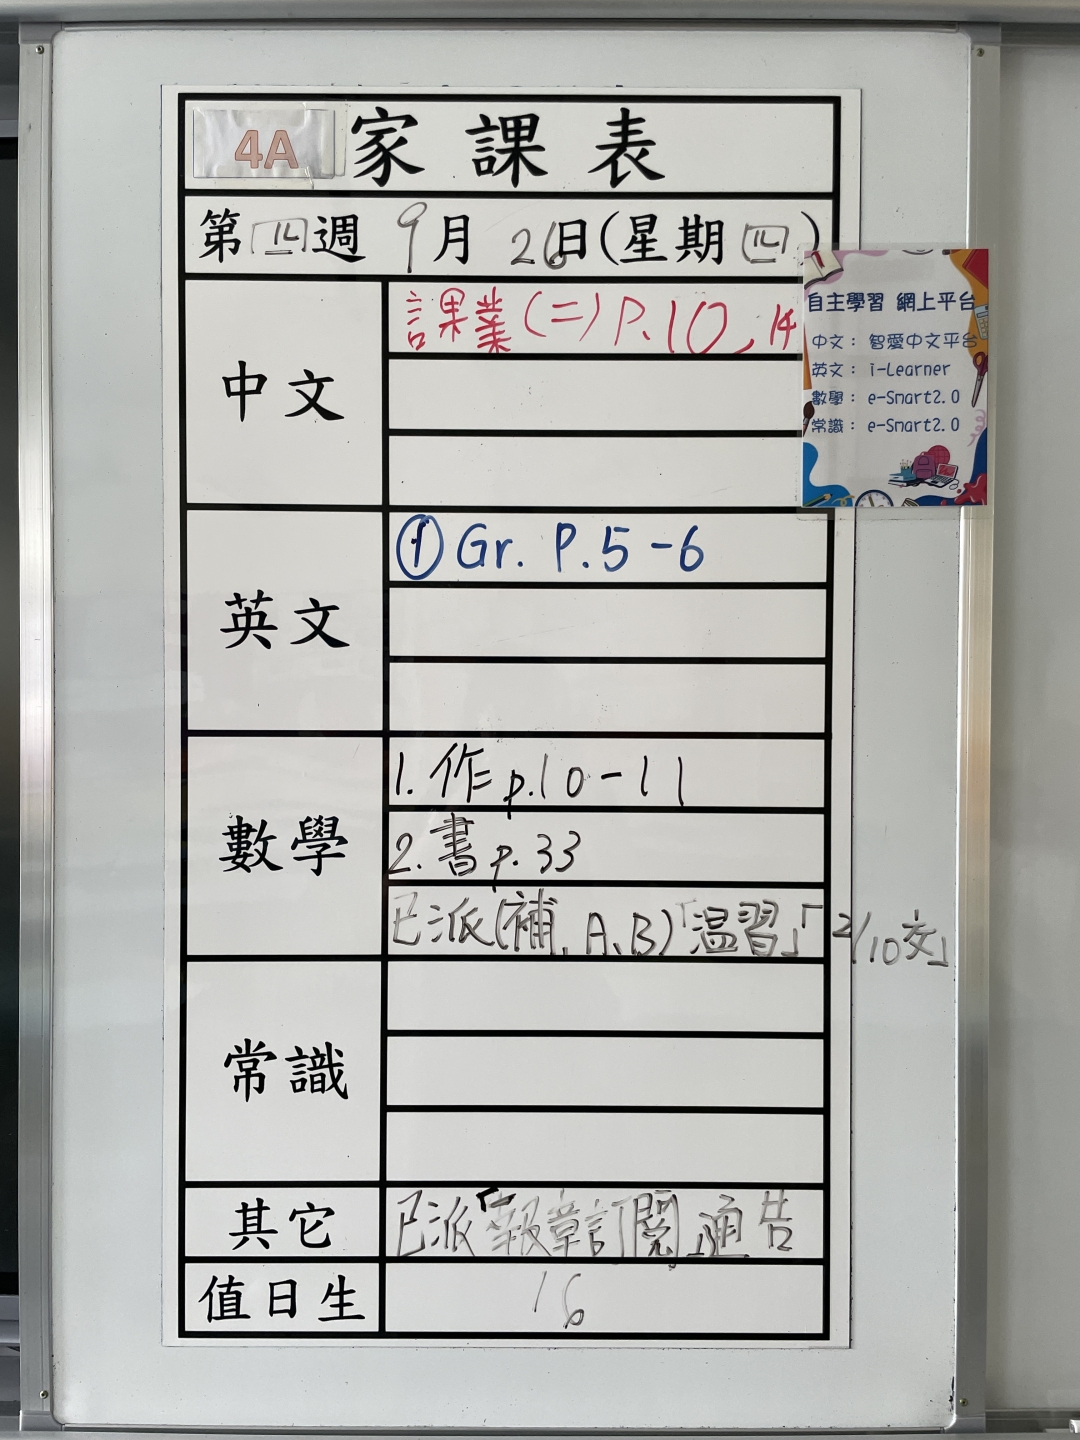 4A 家課表
第四週 9月26日(星期四)
中文
課業(二) P.10, 14
自主學習 網上平台
中文： 智愛中文平台
英文： i-Learner
數學： e-Smart2.0
常識： e-Smart2.0
英文
① Gr. P.5-6
數學
1. 作 p.10-11
2. 書 p.33
已派(補、A、B)「温習」「2/10交」
常識
其它
已派「報章訂閱」通告
值日生
16